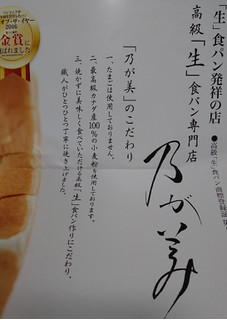 「生」食パン発祥の店
●高級「生」食パン商標登録証
高級「生」食パン専門店
乃が美
「乃が美」のこだわり
一、たまごは使用しておりません。
二、最高級カナダ産100％の小麦粉を使用しております。
三、焼かずに美味しく食べていただける高級「生」食パン作りにこだわり、
職人がひとつひとつ丁寧に焼き上げました。
2016
金賞に
ばれました